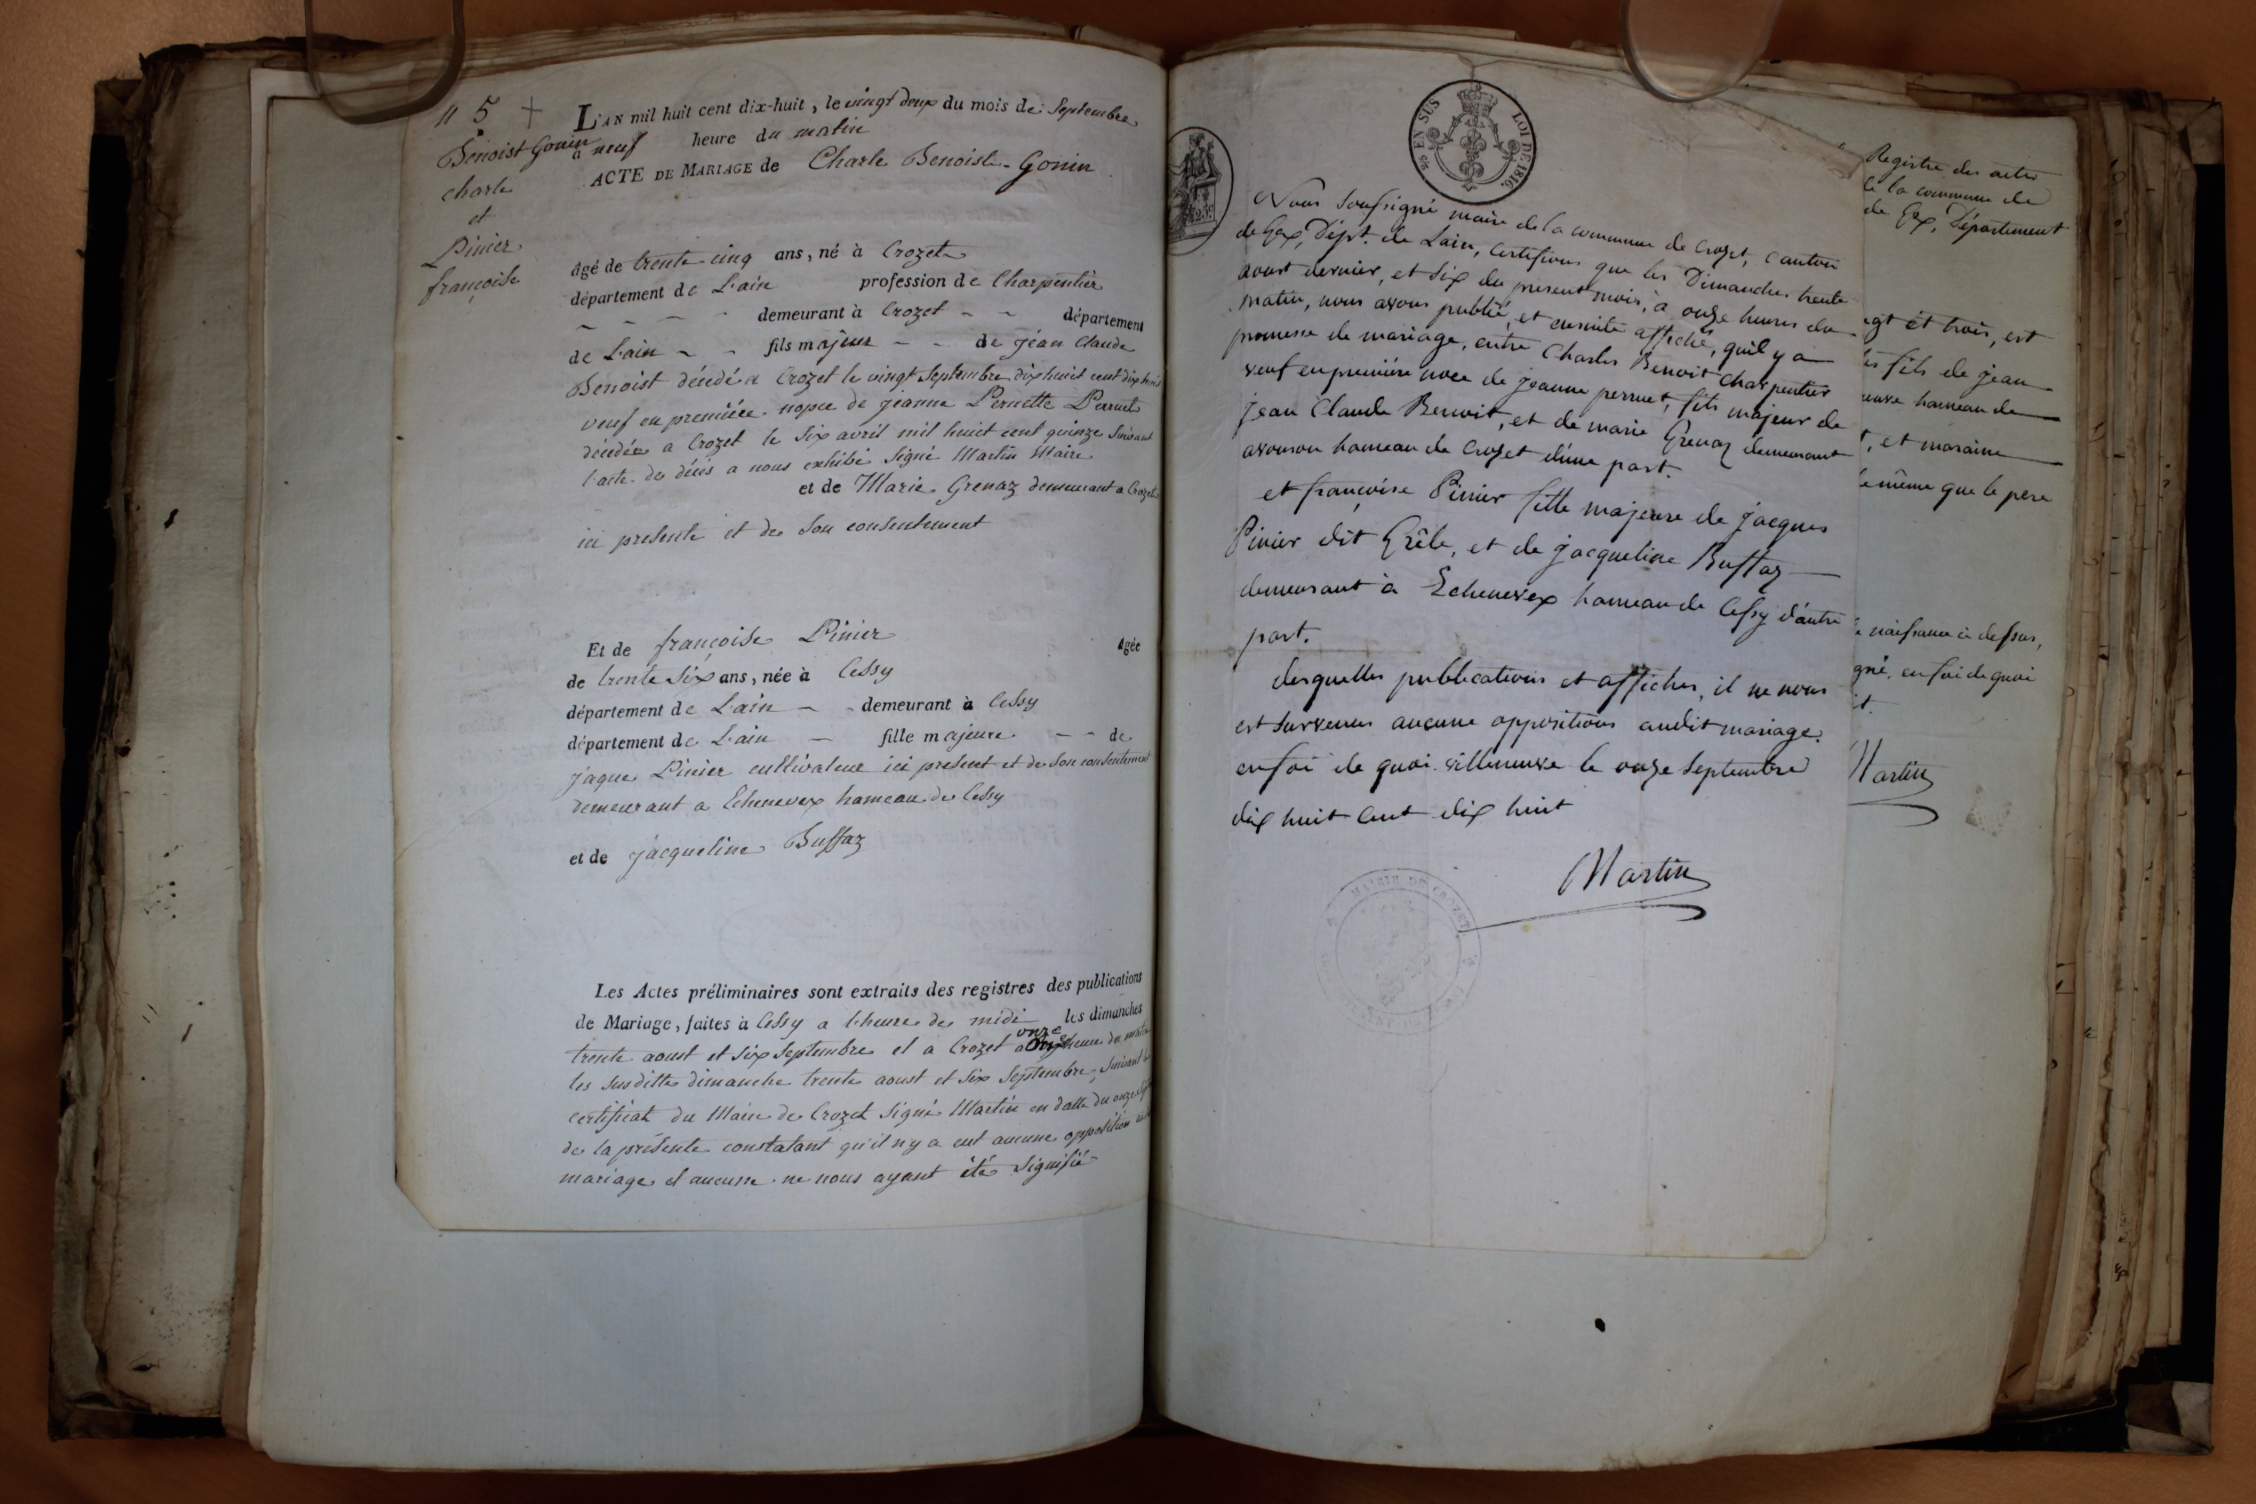 n 5 +
Benoist Gonin
charle
et
Pinier
françoise
L'AN mil huit cent dix-huit, le vingt deux du mois de Septembre
a neuf heure du matin
ACTE DE MARIAGE de Charle Benoist-Gonin
âgé de trente cinq ans, né à Crozet
département de L'ain profession de Charpentier
demeurant à Crozet département
de L'ain fils majeur de jéan Claude
Benoist décédé a Crozet le vingt Septembre dix huit cent dix
veuf en première nopce de jeanne Pernette Perruet
décédée a Crozet le Six avril mil huit cent quinze Suivant
l'acte de décès a nous exhibé Signé Martin Maire
et de Marie Grenaz demeurant a Crozet
ici presente et de Son consentement
Et de françoise Pinier Agée
de trente Six ans, née à Cessy
département de L'ain demeurant à Cessy
département de L'ain fille majeure de
jaque Pinier cultivateur ici présent et de Son consentement
demeurant a Echenevex hameau de Cessy
et de jacqueline Buffaz
Les Actes préliminaires sont extraits des registres des publications
de Mariage, faites à Cessy a l'heure de midi les dimanches
trente aoust et Six Septembre et a Crozet a onze heure du matin
les Susditte dimanche trente aoust et Six Septembre, Suivant le
certificat du Maire de Crozet Signé Martin en datte du onze
de la présente constatant qu'il n'y a eut aucune opposition
mariage et aucune ne nous ayant été Signifié
EN SUS LOI DE 1816.
Nous Soussigné maire de la commune de Crozet, Canton
de Gex, Dépt. de Lain, Certifions que les Dimanches trente
aoust dernier, et Six du present mois, à onze heures du
matin, nous avons publié, et ensuite affiché, qu'il y a
promesse de mariage, entre Charles Benoit Charpentier
veuf en première noce de jeanne perruet, fils majeur de
jean Claude Benoit, et de marie Grenaz demeurant
avouson hameau de Crozet d'une part.
et françoise Pinier fille majeure de jacques
Pinier dit Grêle, et de jacqueline Buffaz
demeurant à Echenevex hameau de Cessy d'autre
part.
desquelles publications et affiches, il ne nous
est survenus aucune oppositions audit mariage.
enfoi de quoi villeneuve le onze Septembre
dix huit cent dix huit
Martin
MAIRIE DE CROZET
Registre des actes
de la commune de
de Gex, Département
gt et trois, est
fils de jean
hameau de
et maraine
même que le pere
naissance ci dessus,
gné, en foi de quoi
Martin